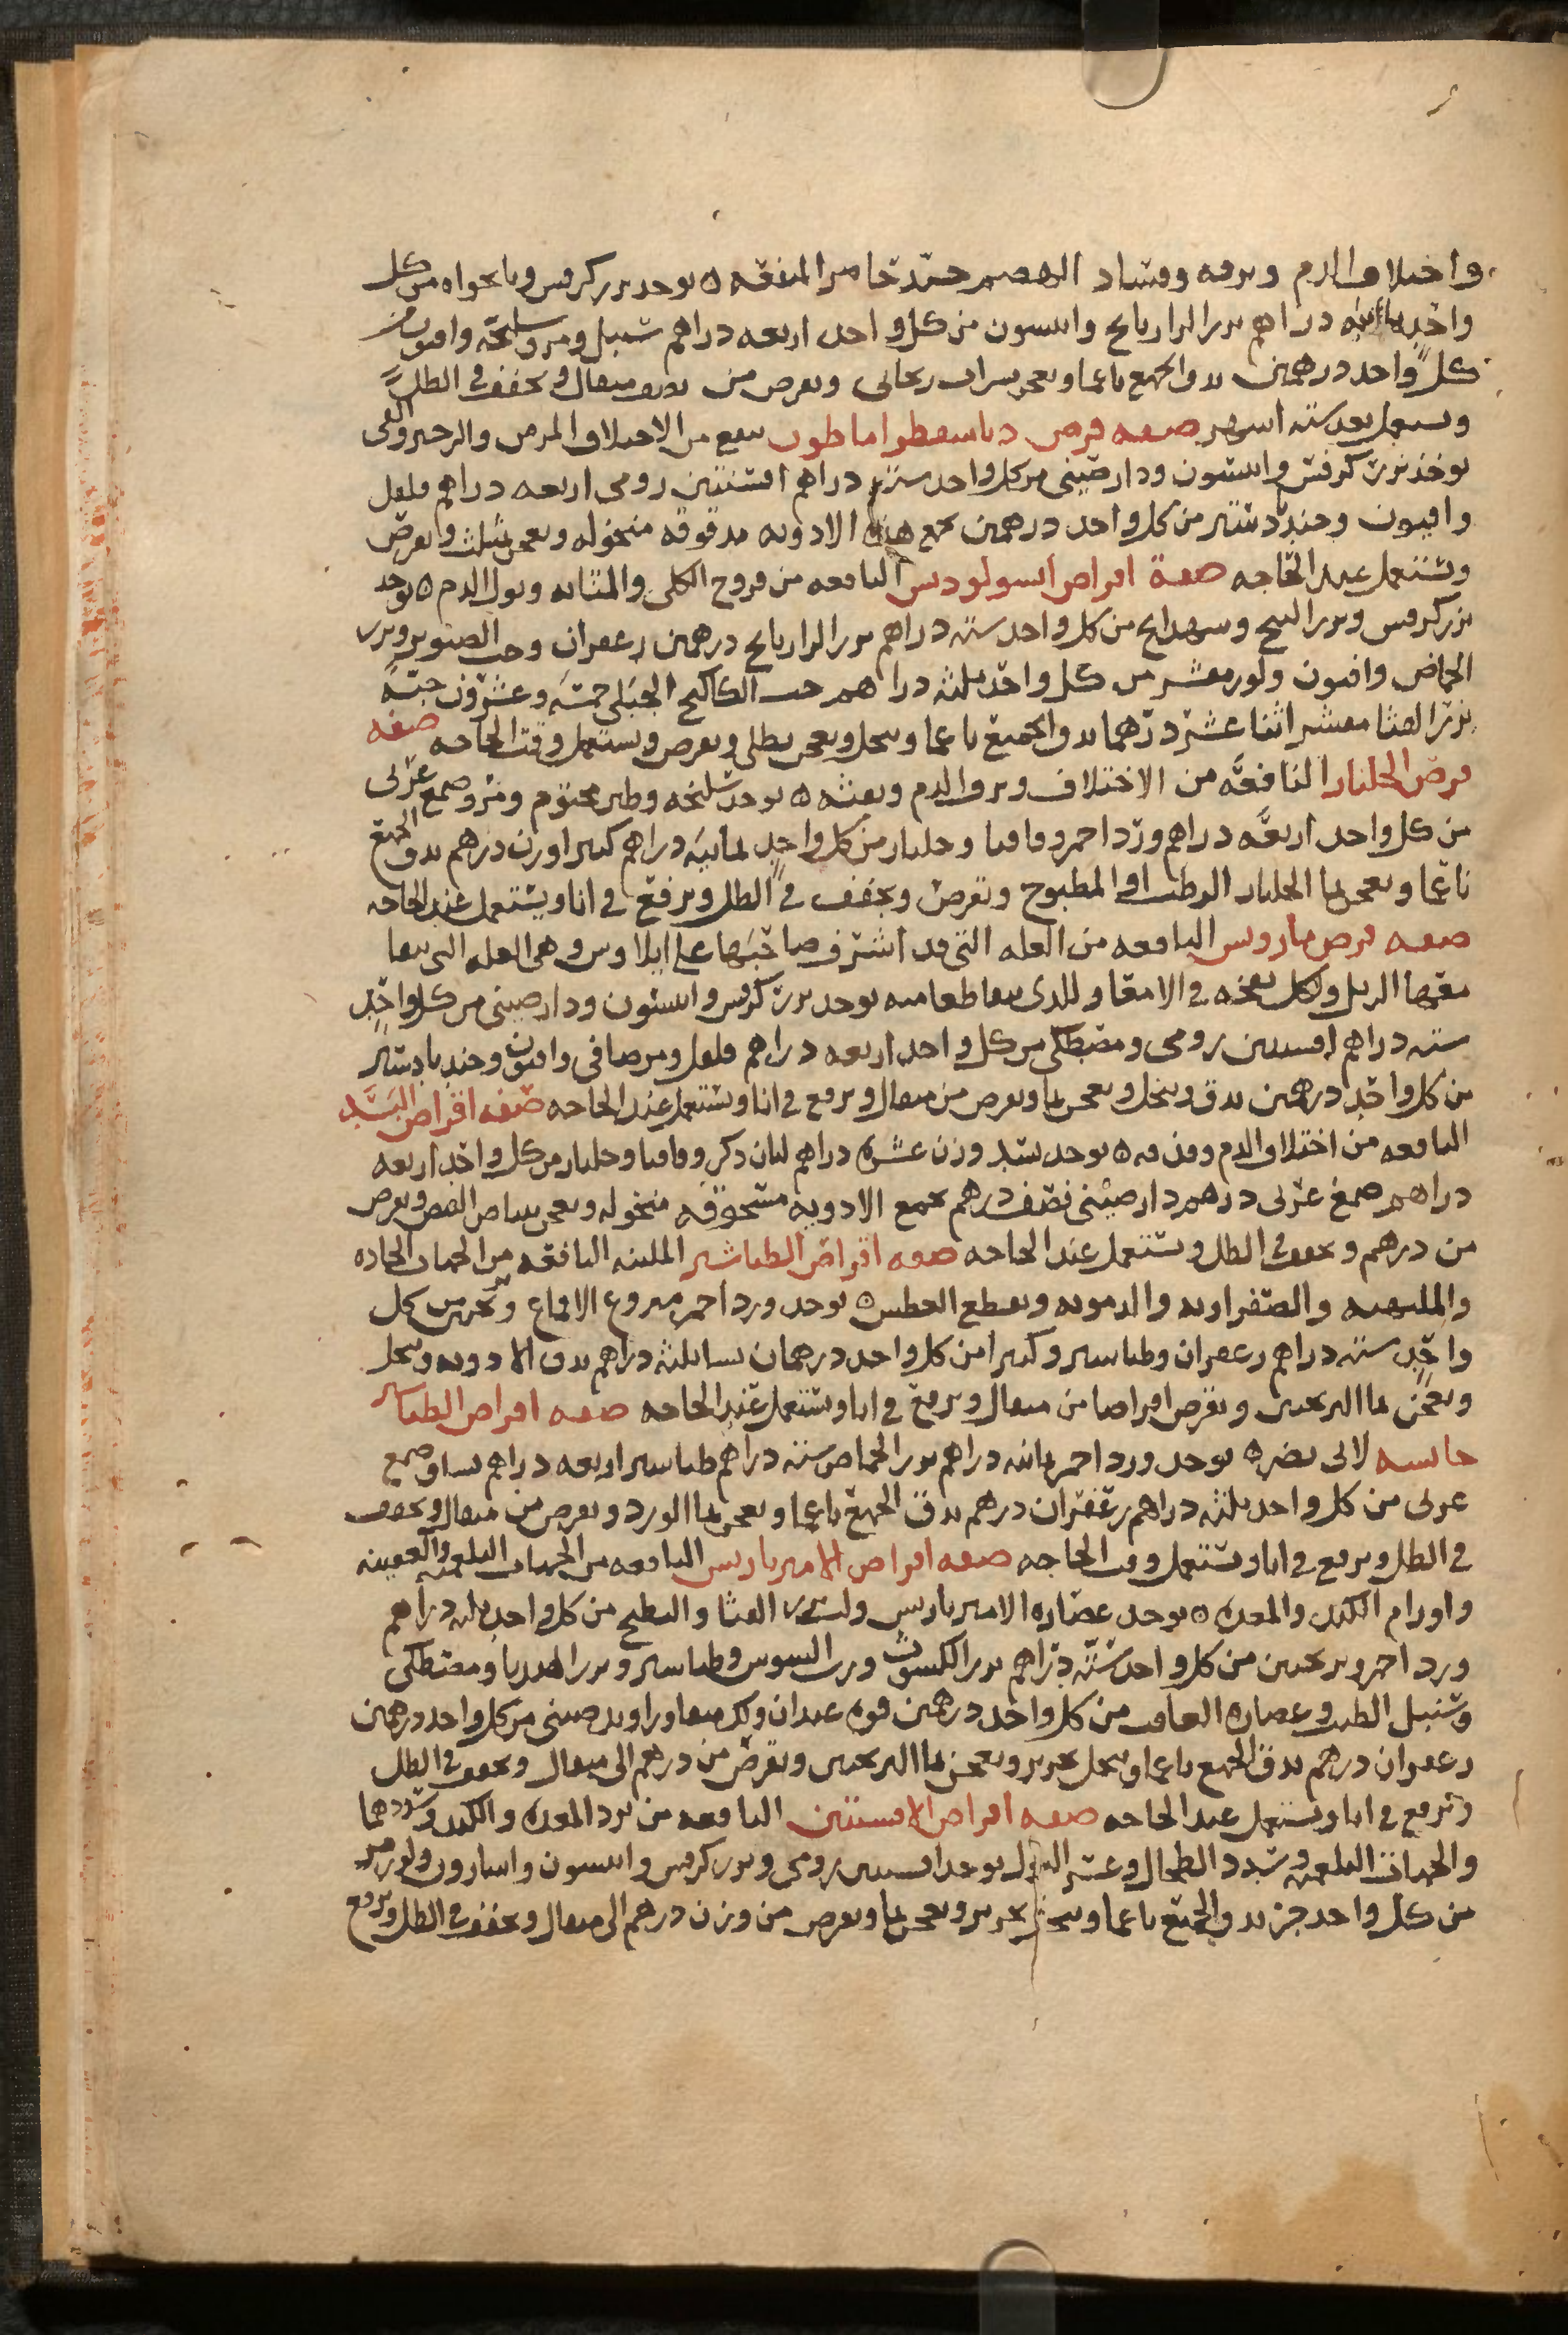 واختلاف الدم ونزفه وفساد الهضم جيّد خاص المنفعه ه يوخد بزر كرفس ونانخواه من كل
واحد ثمانيه دراهم بزر الرازيانج وانيسون من كل واحد اربعه دراهم سنبل ومر وسليخه وافيون من
كل واحد درهمين يدق الجميع ناعما ويعجن بشراب ريحاني ويقرص من نصف مثقال ويجفف في الظل
ويستعمل بعد سته اشهر صفه قرص دياسفطراماطون ينفع من الاختلاف المزمن والزحير والقي
يوخذ بزر كرفس وانيسون ودارصيني من كل واحد سته دراهم افسنتين رومي اربعه دراهم فلفل
وافيون وجندبادستر من كل واحد درهمين تجمع هذه الادويه مدقوقه منخوله ويعجن بمثلث ويقرص
ويستعمل عند الحاجه صفة اقراص اسولودس النافعه من قروح الكلى والمثانه وبول الدم ه يوخد
بزر كرفس وبزر البنج وشهدانج من كل واحد سته دراهم بزر الرازيانج درهمين زعفران وحب الصنوبر وبزر
الحماض وافيون ولوز مقشر من كل واحد ثلثه دراهم حب الكاكنج الجبلي خمسه وعشرون حبه
بزر القثا مقشر اثنا عشر درهما يدق الجميع ناعما وينخل ويعجن بطلي ويقرص ويستعمل وقت الحاجه صفه
قرص الجلنار النافعه من الاختلاف ونزف الدم ونفثه ه يوخد سليخه وطين مختوم ومر وصمغ عربي
من كل واحد اربعه دراهم ورد احمر وقاقيا وجلنار من كل واحد ثمانيه دراهم كثيرا وزن درهم يدق الجميع
ناعما ويعجن بما الجلنار الرطب او المطبوخ ويقرص ويجفف في الظل ويرفع في انا ويستعمل عند الحاجه
صفه قرص ماروس النافعه من العله التي قد اشرف صاحبها على ايلاوس وهي العله التي يتقيا
معها الزبل ولكل نفخه في الامعا وللذي يتقيا طعامه يوخد بزر كرفس وانيسون ودارصيني من كل واحد
سته دراهم افسنتين رومي ومصطكي من كل واحد اربعه دراهم فلفل ومر صافي وافيون وجندبادستر
من كل واحد درهمين يدق وينخل ويعجن بما ويقرص من مثقال ويرفع في انا ويستعمل عند الحاجه صفه اقراص البسّد
النافعه من اختلاف الدم وقذفه ه يوخد بسّد وزن عشره دراهم لبان ذكر وقاقيا وجلنار من كل واحد اربعه
دراهم صمغ عربي درهم دارصيني نصف درهم تجمع الادويه مسحوقه منخوله ويعجن ببياض البيض ويقرص
من درهم ويجفف في الظل ويستعمل عند الحاجه صفه اقراص الطباشير الملينه النافعه من الحميات الحاده
والملتهبه والصفراويه والدمويه ويقطع العطش ه يوخد ورد احمر منزوع الاقماع وترنجبين من كل
واحد سته دراهم زعفران وطباشير وكثيرا من كل واحد درهمان نشا ثلثه دراهم يدق الادويه وينخل
ويعجن بما الترنجبين ويقرص اقراصا من مثقال ويرفع في انا ويستعمل عند الحاجه صفه اقراص الطباشير
حابسه لابي نصر ه يوخد ورد احمر ثمانيه دراهم بزر الحماض سته دراهم طباشير اربعه دراهم نشا وصمغ
عربي من كل واحد ثلثه دراهم زعفران درهم يدق الجميع ناعما ويعجن بما الورد ويقرص من مثقال ويجفف
في الظل ويرفع في انا ويستعمل وقت الحاجه صفه اقراص الامیرباريس النافعه من الحميات البلغميه والعفينه
واورام الكبد والمعده ه يوخد عصاره الاميرباريس ولب بزر القثا والبطيخ من كل واحد ثلثه دراهم
ورد احمر وترنجبين من كل واحد سته دراهم بزر الكشوث ورب السوس وطباشير وبزر الهندبا ومصطكي
وسنبل الطيب وعصاره الغافت من كل واحد درهمين فوه عيدان ولك منقا وراوند صيني من كل واحد درهمين
زعفران درهم يدق الجميع ناعما وينخل بحرير ويعجن بما الترنجبين ويقرص من درهم الى مثقال ويجفف في الظل
ويرفع في انا ويستعمل عند الحاجه صفه اقراص الافسنتين النافعه من برد المعده والكبد وسددهما
والحميات البلغميه وسدد الطحال وعسر البول يوخد افسنتين رومي وبزر كرفس وانيسون واسارون ولوز مر
من كل واحد جز يدق الجميع ناعما وينخل بحرير ويعجن بما ويقرص من وزن درهم الى مثقال ويجفف في الظل ويرفع